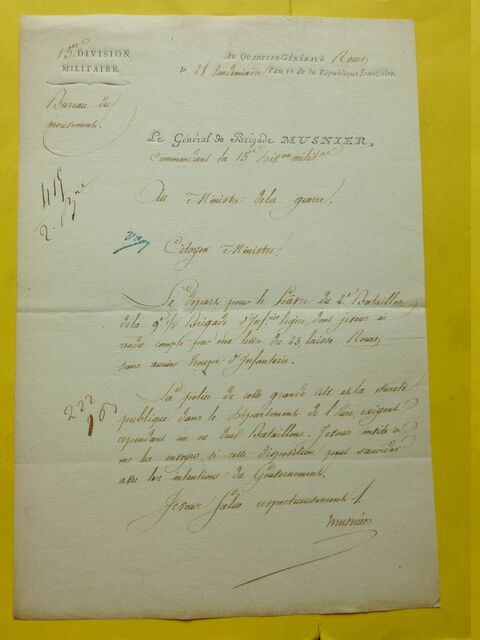 15.me DIVISION
MILITAIRE.
AU QUARTIER-GÉNÉRAL à Rouen
le 28 Vendemiaire l'an 12 de la République française.
Bureau du
mouvement.
Le Général de Brigade MUSNIER,
Commandant la 15me Dizon militre
Au Ministre de la guerre.
Citoyen Ministre
Le départ pour le havre du 2e Bataillon
de la 9e 1/2 Brigade d'Infrie légère, dont je vous ai
rendu compte par ma lettre du 23, laisse Rouen
sans aucune troupe d'Infanterie.
La police de cette grande cité et la sureté
publique dans le département de l'Eure, exigent
cependant un ou deux Bataillons. Je vous invite à
me les envoyer, si cette disposition peut s'accorder
avec les intentions du Gouvernement.
222
167
Je vous salue respectueusement
Musnier